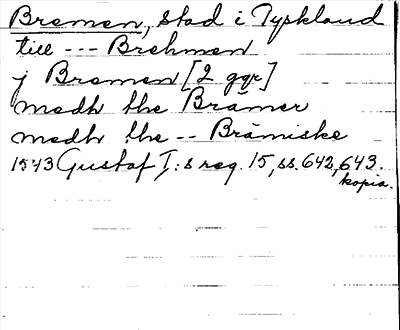 Bremen, stad i Tyskland
till --- Brehmen
j Bremen [2 ggr]
medh the Brämer
medh the -- Brämiske
1543 Gustaf I:s reg. 15, ss. 642, 643.
kopia.